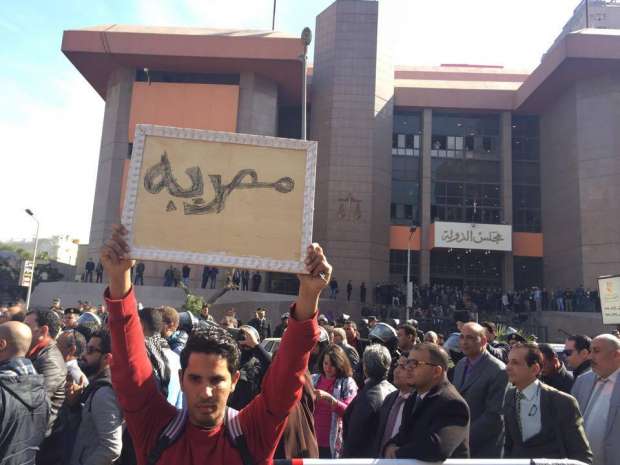 مصريه
مجلس الدولة